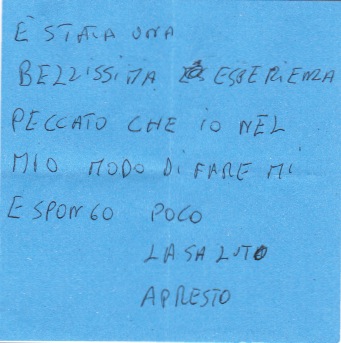 È STATA UNA
BELLISSIMA ESBERIENZA
PECCATO CHE IO NEL
MIO MODO DI FARE MI
ESPONGO POCO
LA SALUTO
APRESTO